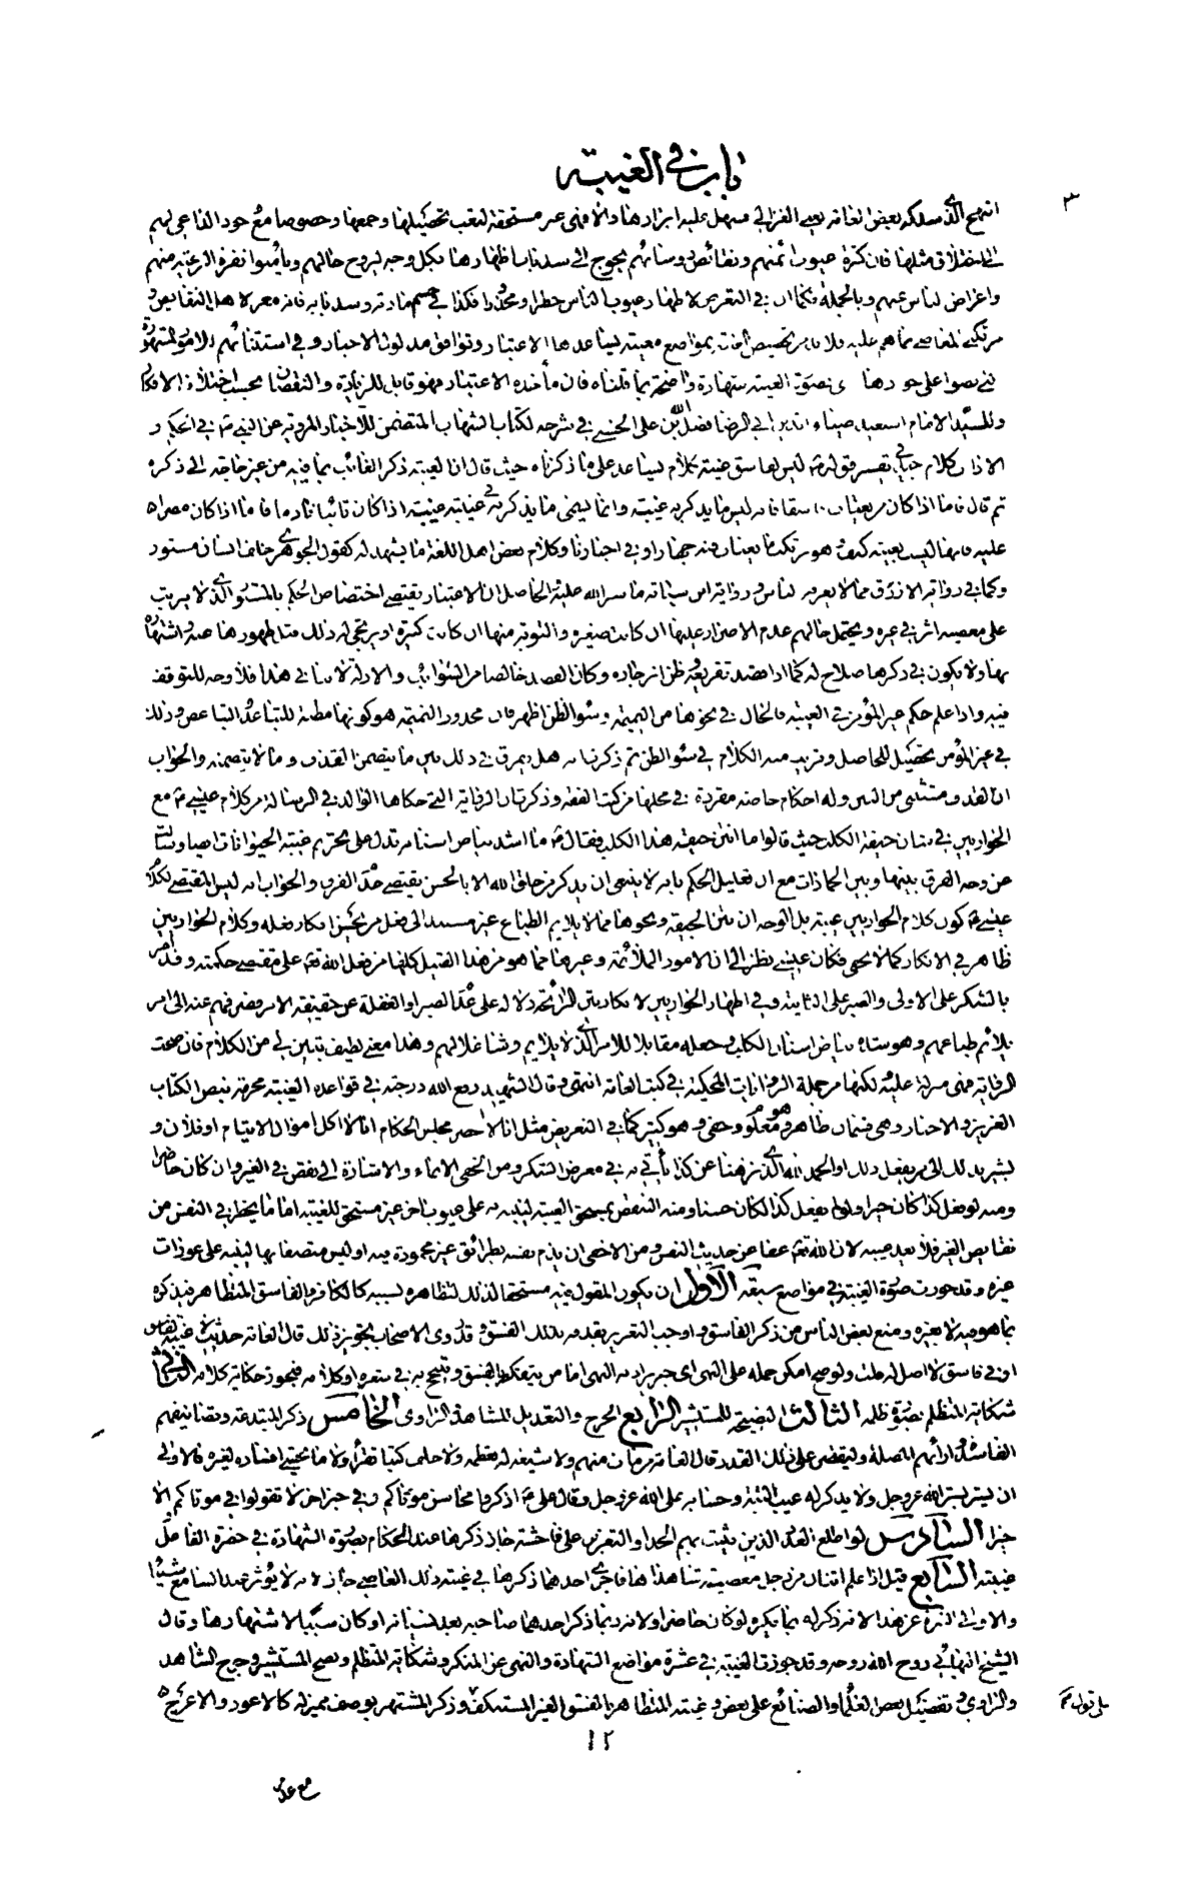 باب في الغيبة
٣
انتهج الذي سلكه بعض العامة يعني الغزالي فسهل عليه ابرازها والا فهي غير مستحقة لتعب تحصيلها وجمعها وخصوصا مع جود الداعي لهم
فان كثرة عيوب ائمتهم ونقائص رؤسائهم يحوج الى سد باب اظهارها بكل وجه ليروح حالهم ويأمنوا نفرة الرعية منهم
واعراض الناس عنهم وبالجملة فكما ان في التعرض لاظهار عيوب الناس خطرا ومحذورا فكذا في حسم مادته وسد بابه فانه مغر لاهل النقائص و
مرتكبي المعاصي بما هم عليه فلا بد من تخصيص الغيبة بمواضع معينة يساعدها الاعتبار وتوافق مدلول الاخبار وفي استثنائهم الامور المشهورة
التي نصوا على جوازها في صورة الغيبة شهادة واضحة بما قلناه فان مأخذه الاعتبار فهو قابل للزيادة والنقصان بحسب اختلاف الافكار
وللسيد الامام السعيد ضياء الدين ابي الرضا فضل الله بن علي الحسني في شرحه لكتاب الشهاب المتضمن للاخبار المروية عن النبي ص في الحكم و
الاداب كلام في تفسير قوله ص ليس لفاسق غيبة كلام يساعد على ما ذكرناه حيث قال ان الغيبة ذكر الغائب بما فيه من غير حاجة الى ذكره
ثم قال فاما اذا كان من يغتاب فاسقا فانه ليس ما يذكر به غيبة وانما يسمى ما يذكر به في غيبته غيبة اذا كان تائبا نادما فاما اذا كان مصرا
عليه فانها ليست بغيبة كيف وهو يرتكب ما يغتاب به جهارا وفي اخبارنا وكلام بعض اهل اللغة ما يشهد له كقول الجوهري خلف انسان مستور
وكما في رواية الازرق مما لا يعرفه الناس ورواية ابن سيابة ما ستر الله عليه الحاصل ان الاعتبار يقتضي اختصاص الحكم بالمستور الذي لا يترتب
على معصيته اثر في غيره ويحتمل حالهم عدم الاصرار عليها ان كانت صغيرة والتوبة منها ان كانت كبيرة او يرتجى له ذلك قبل ظهورها عنه واشتهاره
بها ولا يكون في ذكرها صلاح له كما اذا قصد تقريعه وظن انزجاره وكان القصد خالصا من الشوائب والادلة لا تنافي هذا فلا وجه للتوقف
فيه واذا علم حكم غير المؤمن في الغيبة فالحال في نحوها من النميمة وسوء الظن اظهر فان محذور النميمة هو كونها مظنة للتباعد والتباغض وذلك
في غير المؤمن تحصيل للحاصل وقريب منه الكلام في سوء الظن ثم ذكر انه هل يفرق في ذلك بين ما يتضمن القذف وما لا يتضمنه والجواب
ان القذف مستثنى من البين وله احكام خاصة مقررة في محلها من كتب الفقه وذكر ان الرواية التي حكاها الوالد في الرسالة من كلام عيسى ع مع
الحواريين في شان جيفة الكلب حيث قالوا ما انتن جيفة هذا الكلب فقال ع ما اشد بياض اسنانه تدل على تحريم غيبة الحيوانات ايضا ويسأل
عن وجه الفرق بينها وبين الجمادات مع ان تعليل الحكم بانه لا ينبغي ان يذكر من خلق الله الا بالحسن يقتضي عدم الفرق والجواب انه ليس المقتضي لكلام
عيسى ع كون كلام الحواريين غيبة بل الوجه ان نتن الجيفة ونحوها مما لا يلائم الطباع غير مستند الى فعل من يحسن انكار فعله وكلام الحواريين
ظاهر في الانكار كما لا يخفى فكان عيسى ع نظر الى ان الامور الملائمة وغيرها مما هو من هذا القبيل كلها من فعل الله تعالى على مقتضى حكمته وقد امر
بالشكر على الاولى والصبر على الثانية وفي اظهار الحواريين لانكار نتن الرائحة دلالة على عدم الصبر او الغفلة عن حقيقة الامر فصرفهم عنه الى امر
يلائم طباعهم وهو شدة بياض اسنان الكلب وجعله مقابلا للامر الذي لا يلائم وشاغلا لهم وهذا معنى لطيف تبين لي من الكلام فان صحت
الرواية فهي منزلة عليه لكنها من جملة الروايات المحكية في كتب العامة انتهى وقال الشهيد رفع الله درجته في قواعده الغيبة محرمة بنص الكتاب
العزيز والاخبار وهي قسمان ظاهر وهو معلوم وخفي وهو كثير كما في التعريض مثل انا لا احضر مجلس الحكام انا لا اكل اموال الايتام او فلان و
يشير بذلك الى من يفعل ذلك او الحمد لله الذي نزهنا عن كذا يأتي به في معرض الشكر ومن الخفي الايماء والاشارة الى نقص في الغير وان كان حاضرا
ومنه لو فعل كذا كان خيرا ولو لم يفعل كذا لكان حسنا ومنه التنقص بمستحق الغيبة لينبه به على عيوب اخر غير مستحق للغيبة اما ما يخطر في النفس من
نقايص الغير فلا يعد غيبة لان الله تعالى عفا عن حديث النفس ومن الاخفى ان يذم نفسه بطرائق غير محمودة فيه او ليس متصفا بها لينبه على عورات
غيره وقد جوزت صورة الغيبة في مواضع سبعة الاول ان يكون المقول فيه مستحقا لذلك لتظاهره بسببه كالكافر والفاسق المتظاهر فيذكره
بما هو فيه لا بغيره ومنع بعض الناس من ذكر الفاسق واوجب التعزير بقذفه بذلك الفسق وقد روى الاصحاب تجويز ذلك قال العامة حديث لا غيبة لفاسق
او في فاسق لا اصل له قلت ولو صح امكن حمله على النهي اي خبر يراد به النهي اما من يتفكه بالفسق ويتبجح به في شعره او كلامه فيجوز حكاية كلامه الثاني
شكاية المتظلم بصورة ظلمه الثالث النصيحة للمستشير الرابع الجرح والتعديل للشاهد والراوي الخامس ذكر المبتدعة وتصانيفهم
الفاسدة وآرائهم المضلة وليقتصر على ذلك القدر قال العامة من مات منهم ولا شيعة له تعظمه ولا خلف كتبا تقرأ ولا ما يخشى افساده لغيره فالاولى
ان يستر بستر الله عز وجل ولا يذكر له عيب البتة وحسابه على الله عز وجل وقال علي ع اذكروا محاسن موتاكم وفي خبر اخر لا تقولوا في موتاكم الا
خيرا السادس لو اطلع العدد الذين يثبت بهم الحد او التعزير على فاحشة جاز ذكرها عند الحكام بصورة الشهادة في حضرة الفاعل و
غيبته السابع قيل اذا علم اثنان من رجل معصية شاهداها فاجرى احدهما ذكرها في غيبة ذلك العاصي جاز لانه لا يؤثر عند السامع شيئا
والاولى التنزه عن هذا لانه ذكر له بما يكره لو كان حاضرا ولانه ربما ذكر احدهما صاحبه بعد نسيانه او كان سببا لاشتهارها وقال
الشيخ البهائي روح الله روحه وقد جوزت الغيبة في عشرة مواضع الشهادة والنهي عن المنكر وشكاية المتظلم ونصح المستشير وجرح الشاهد
والراوي وتفضيل بعض العلماء والصناع على بعض وغيبة المتظاهر بالفسق الغير المستنكف وذكر المشتهر بوصف مميز له كالاعور والاعرج
١٢